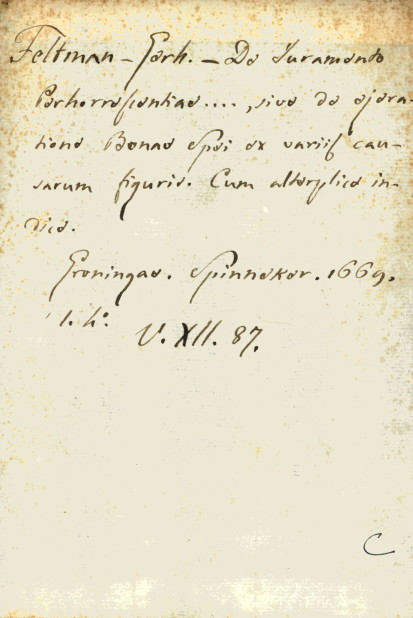 Feltman - Gerh. - De Juramento
Perhorrescentiae...., sive de ejera-
tione Bonae Spei ex variis cau-
sarum figuris. Cum alterplice in-
dice.
Groningae. Spinneker. 1669.
1. 4º.
V. XII. 87.
C